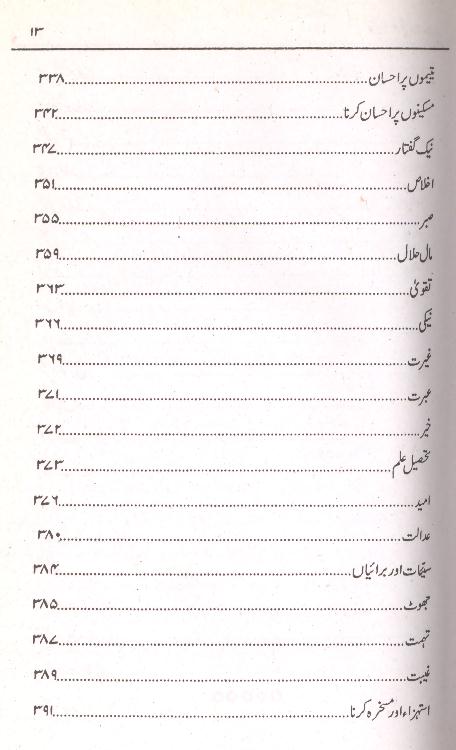 ۱۳
یتیموں پر احسان........................................۳۳۸
مسکینوں پر احسان کرنا........................................۳۴۲
نیک گفتار........................................۳۴۷
اخلاص........................................۳۵۱
صبر........................................۳۵۵
مال حلال........................................۳۵۹
تقویٰ........................................۳۶۳
نیکی........................................۳۶۶
غیرت........................................۳۶۹
عبرت........................................۳۷۱
خیر........................................۳۷۲
تحصیل علم........................................۳۷۳
امید........................................۳۷۶
عدالت........................................۳۸۰
سیّئات اور برائیاں........................................۳۸۴
جھوٹ........................................۳۸۵
تہمت........................................۳۸۷
غیبت........................................۳۸۹
استہزاء اور مسخرہ کرنا........................................۳۹۱